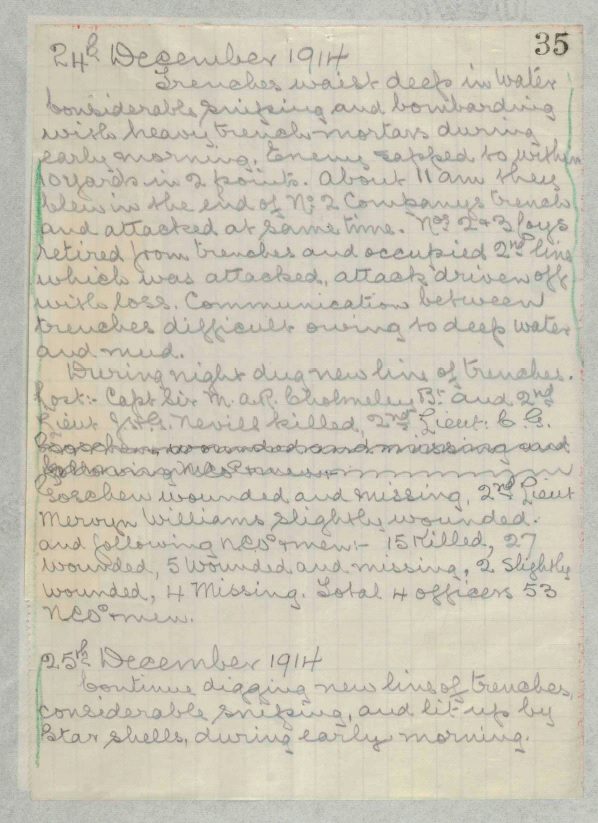 35
24th December 1914
Trenches waist deep in water
Considerable sniping and bombarding
with heavy trench mortars during
early morning. Enemy sapped to within
10 yards in 2 points. About 11 am they
blew in the end of No 2 Companys trench
and attacked at same time. Nos 2 & 3 Coys
retired from trenches and occupied 2nd line
which was attacked, attack driven off
with loss. Communication between
trenches difficult owing to deep water
and mud.
During night dug new line of trenches.
Lost:- Capt Sir M.A.R. Cholmeley Bt and 2nd
Lieut J.H.G. Nevill killed, 2nd Lieut: C.G.
Goschen wounded and missing and
following NCOs & men:-
Goschen wounded and missing, 2nd Lieut
Mervyn Williams slightly wounded.
and following NCOs & men:- 15 Killed, 27
wounded, 5 Wounded and missing, 2 Slightly
wounded, 4 Missing. Total 4 officers 53
NCOs & men.
25th December 1914
Continue digging new line of trenches,
considerable sniping, and lit up by
Star shells, during early morning.